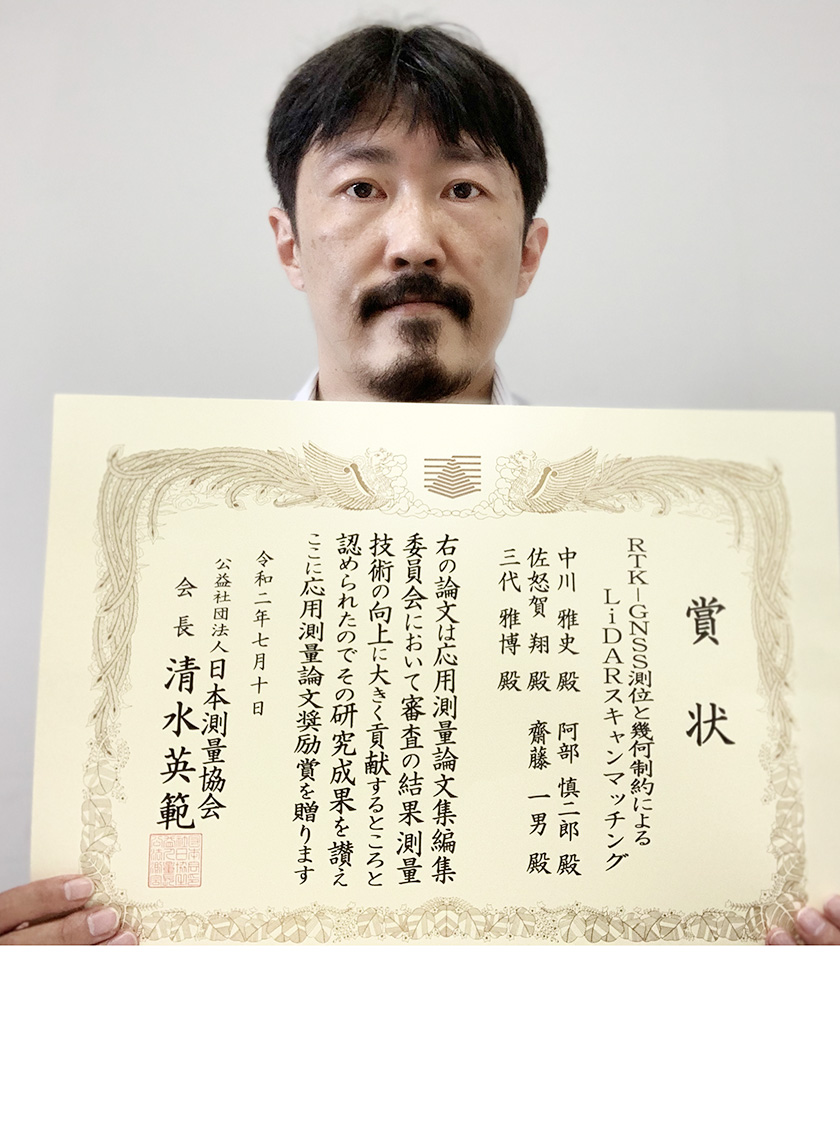 賞状
RTK-GNSS測位と幾何制約による
LiDARスキャンマッチング
中川 雅史 殿 阿部 慎二郎 殿
佐怒賀 翔 殿 齋藤 一男 殿
三代 雅博 殿
右の論文は応用測量論文集編集
委員会において審査の結果測量
技術の向上に大きく貢献するところと
認められたのでその研究成果を讃え
ここに応用測量論文奨励賞を贈ります
令和二年七月十日
公益社団法人日本測量協会
会長 清水英範